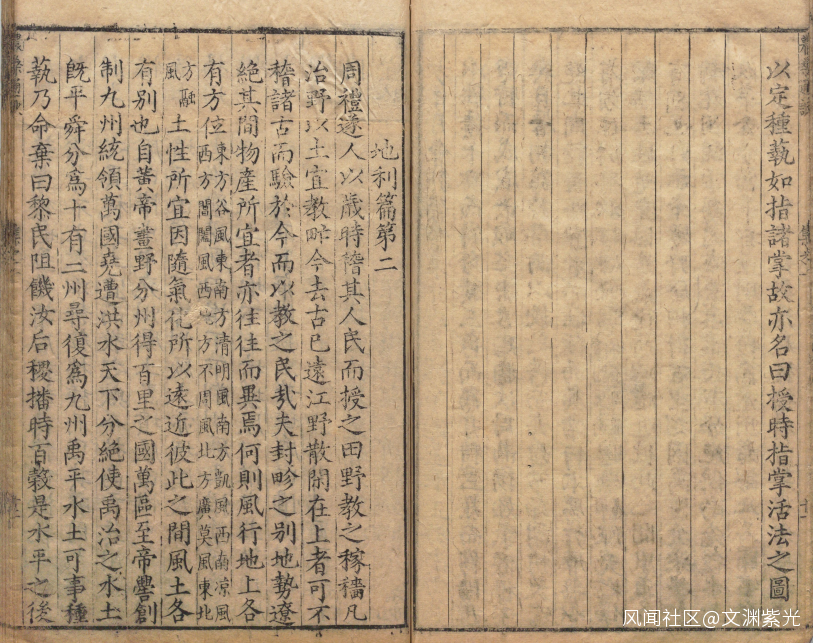 以定種蓺如指諸掌故亦名曰授時指掌活法之圖
地利篇第二
周禮遂人以歲時稽其人民而授之田野教之稼穡凡
治野以土宜教甿今去古已遠江野散閑在上者可不
稽諸古而驗於今而以教之民㢤夫封畛之别地勢遼
絶其間物産所宜者亦往往而異焉何則風行地上各
有方位東方谷風東南方清明風南方凱風西南凉風
西方閶闔風西北方不周風北方廣莫風東北
方融風土性所宜因隨氣化所以遠近彼此之間風土各
有别也自黄帝畫野分州得百里之國萬區至帝嚳創
制九州統領萬國堯遭洪水天下分絶使禹治之水土
旣平舜分爲十有二州尋復爲九州禹平水土可事種
蓺乃命棄曰黎民阻饑汝后稷播時百穀是水平之後
风闻社区@文渊紫光